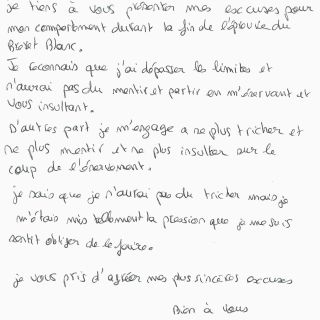 Je tiens à vous présenter mes excuses pour
mon comportement durant la fin de l'épreuve du
Brevet Blanc.
Je reconnais que j'ai dépasser les limites et
n'aurai pas du mentir et partir en m'énervant et
vous insultant.
D'autres part je m'engage a ne plus tricher et
ne plus mentir et ne plus insulter sur le
coup de l'énervement.
je sais que je n'aurai pas du tricher mais je
m'étais mis tellement la pression que je me suis
sentit obliger de le faire.
je vous pris d'agréer mes plus sincères excuses
Bien à vous